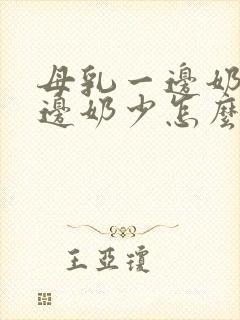 母乳一邊奶
邊奶少怎麼
王亞瓊